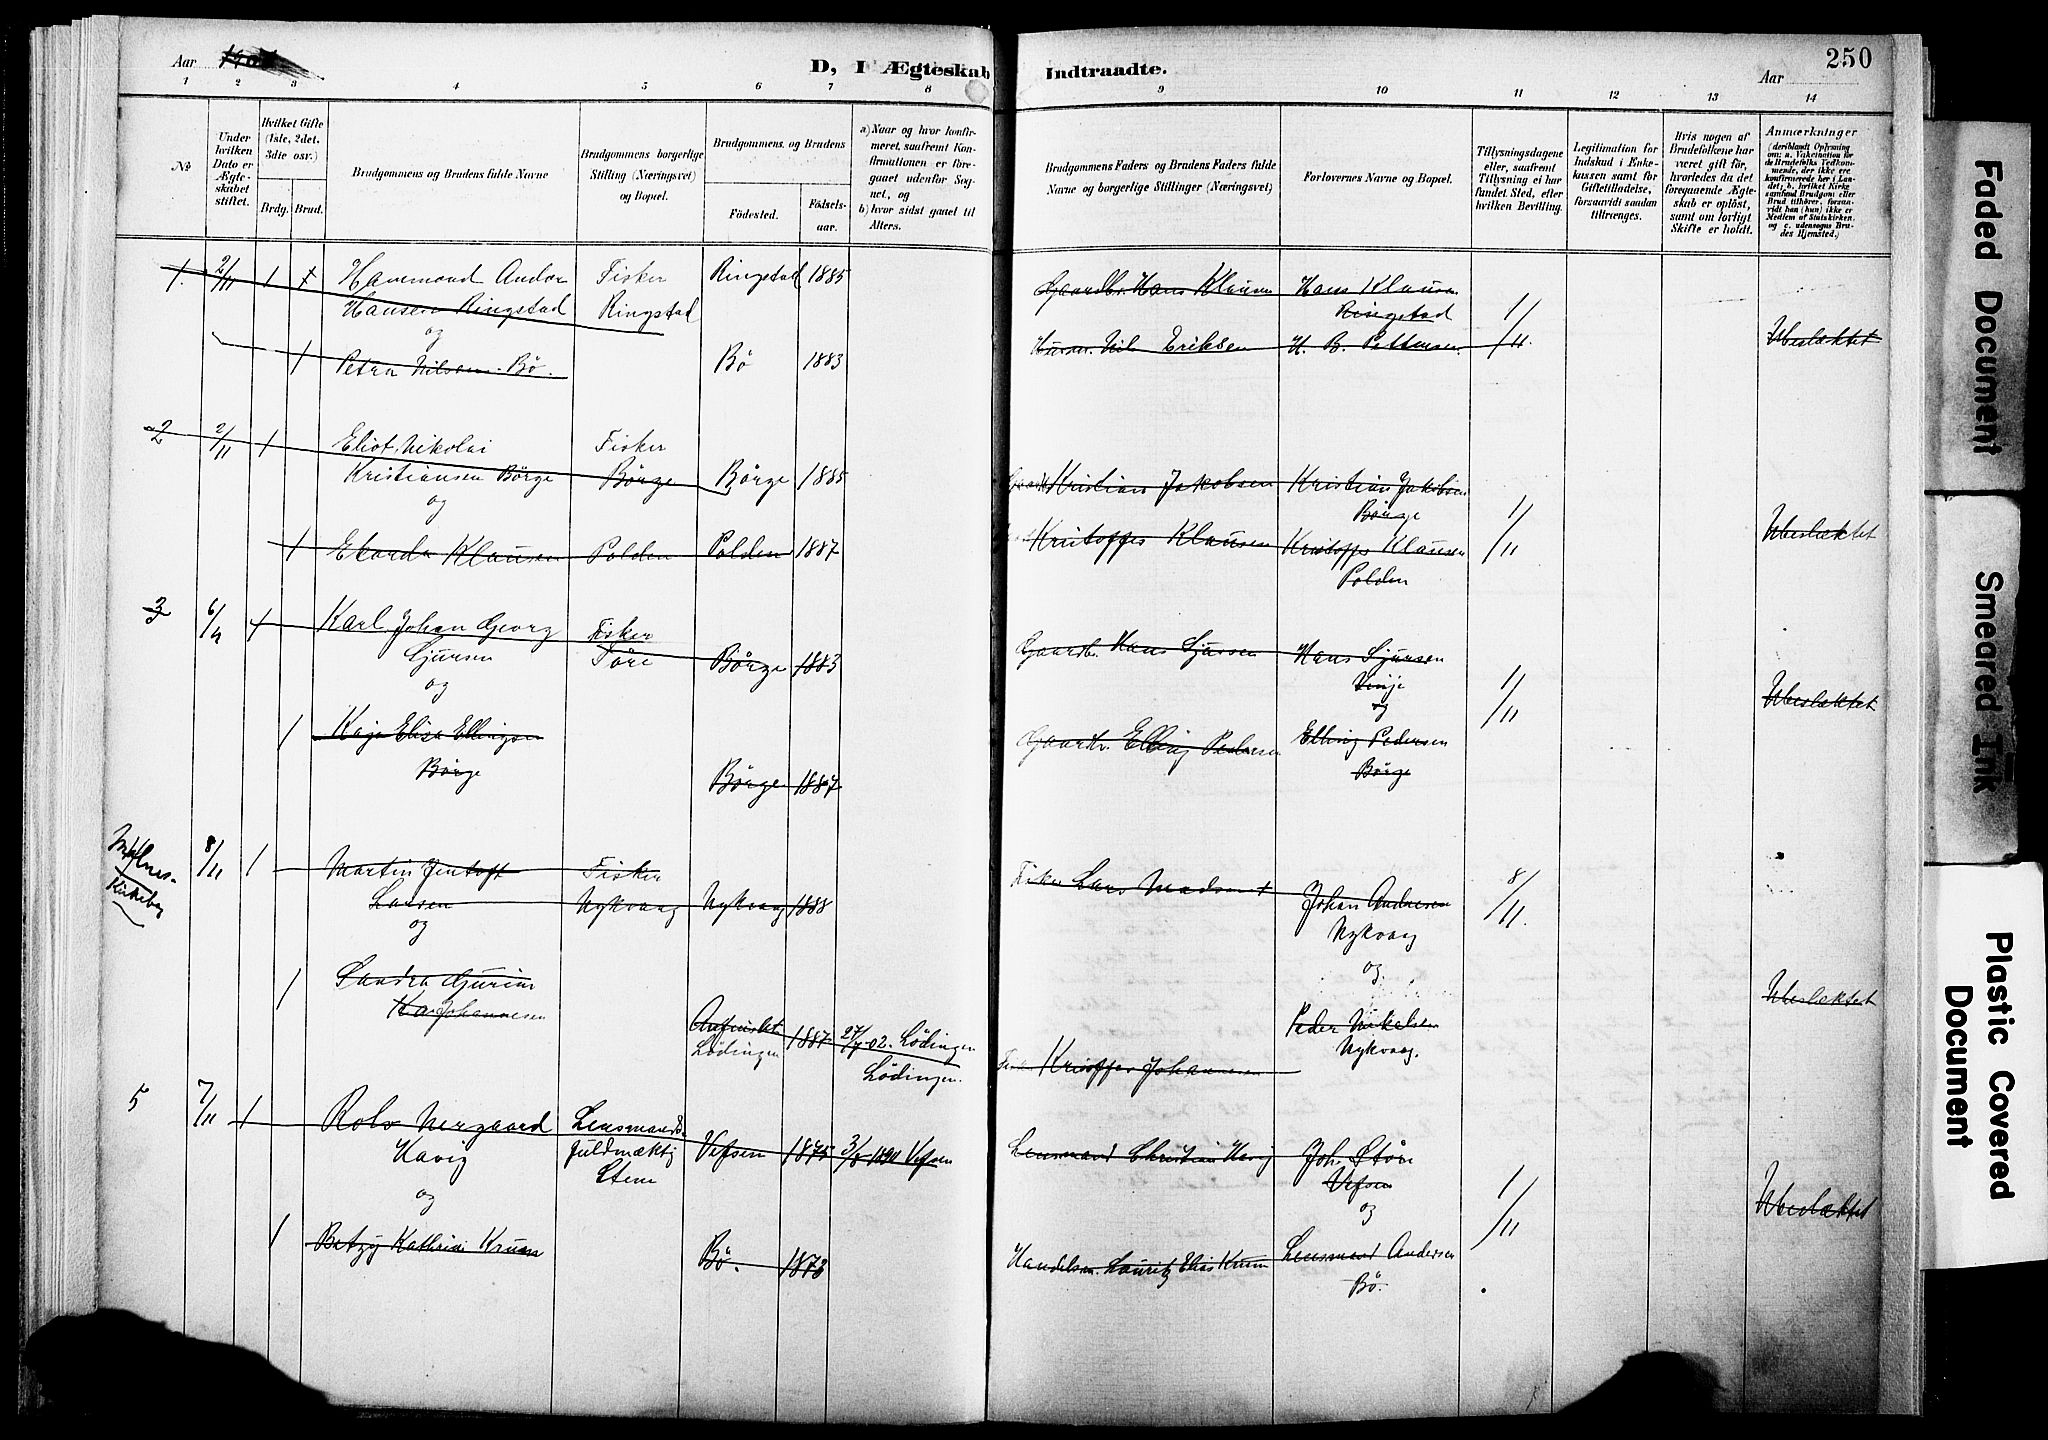 250
Aar
D, I Ægteskab Indtraadte.
Aar
1 2 3 4 5 6 7 8 9 10 11 12 13 14
No
Under hvilken Dato er Ægteskabet stiftet.
Hvilket Gifte (1ste, 2det, 3die osv.)
Brdg. Brud.
Brudgommens og Brudens fulde Navne
Brudgommens borgerlige Stilling (Næringsvei) og Bopæl.
Brudgommens og Brudens
Fødested.
Fødselsaar.
a) Naar og hvor konfirmeret, saafremt Konfirmationen er foregaaet udenfor Sognet, og
b) hvor sidst gaaet til Alters.
Brudgommens Faders og Brudens Faders fulde Navne og borgerlige Stillinger (Næringsvei)
Forlovernes Navne og Bopæl.
Tillysningsdagene eller, saafremt Tillysning ei har fundet Sted, efter hvilken Bevilling.
Legitimation for Indskud i Enkekassen samt for Giftetilladelse, forsaavidt saadan tiltrænges.
Hvis nogen af Brudefolkene har været gift før, hvorledes da det foregaaende Ægteskab er opløst, samt om lovligt Skifte er holdt.
Anmærkninger
(deriblandt Oplysning om: a. Vaccination for de Brudefolks Vedkommende, der ikke ere konfirmerede her i Landet; b. hvilket Kirkesamfund Brudgom eller Brud tilhører, forsaavidt han (hun) ikke er Medlem af Statskirken, og c. udensogns Brudes Hjemsted.)
1. 2/11 1 Hammond Andor Fisker Ringstad 1885 Gaardbr. Hans Klausen Hans Klausen
Hansen Ringstad Ringstad Ringstad
og 1/11
1 Petra Nilsen Bø. Bø 1883 Nils Eriksen H. B. Pettersen Ubeslæktet
2 2/11 1 Eliot Nikolai Fisker
Kristiansen Börge Börge Börge 1885 Kristian Jakobsen Kristian Jakobsen
og Börge 1/11
1 Ekarda Klausen Polden Polden 1887 Kristoffer Klausen Kristoffer Klausen Ubeslæktet
Polden
3 1 Karl Johan Georg Fisker
Sjursen Töre Börge 1883 Gaardbr. Hans Sjursen Hans Sjursen
og Vinje
og 1/11 Ubeslæktet
1 Kaja Elisa Ellingsen Gaardbr. Elling Pedersen Elling Pedersen
Börge Börge 1887 Börge
Kirkebog
8/11 1 Martin Jentoft Fisker Fisker Lars Madsen Johan Andresen 8/11.
Larsen Nykvaag Nykvaag 1888 Nykvaag
og og
1 Sandra Gurine Ubeslæktet
Johannesen
Lödingen 1887 27/7 02. Lödingen Peder Nikelsen
Lödingen. Kristoffer Johannesen Nykvaag.
5 7/11 1 Rolv Nergaard Lensmands-
Havig fuldmæktig Vefsen 1875 Vefsen Lensmand Christian Havig Joh. Störe
og Stene Vefsen
og 1/11 Ubeslæktet
1 Betzy Kathrine Krum Bö. 1873 Handelsm. Lauritz Elias Krum Lensmand Andersen
Bö.
Faded Document
Smeared Ink
Plastic Covered Document